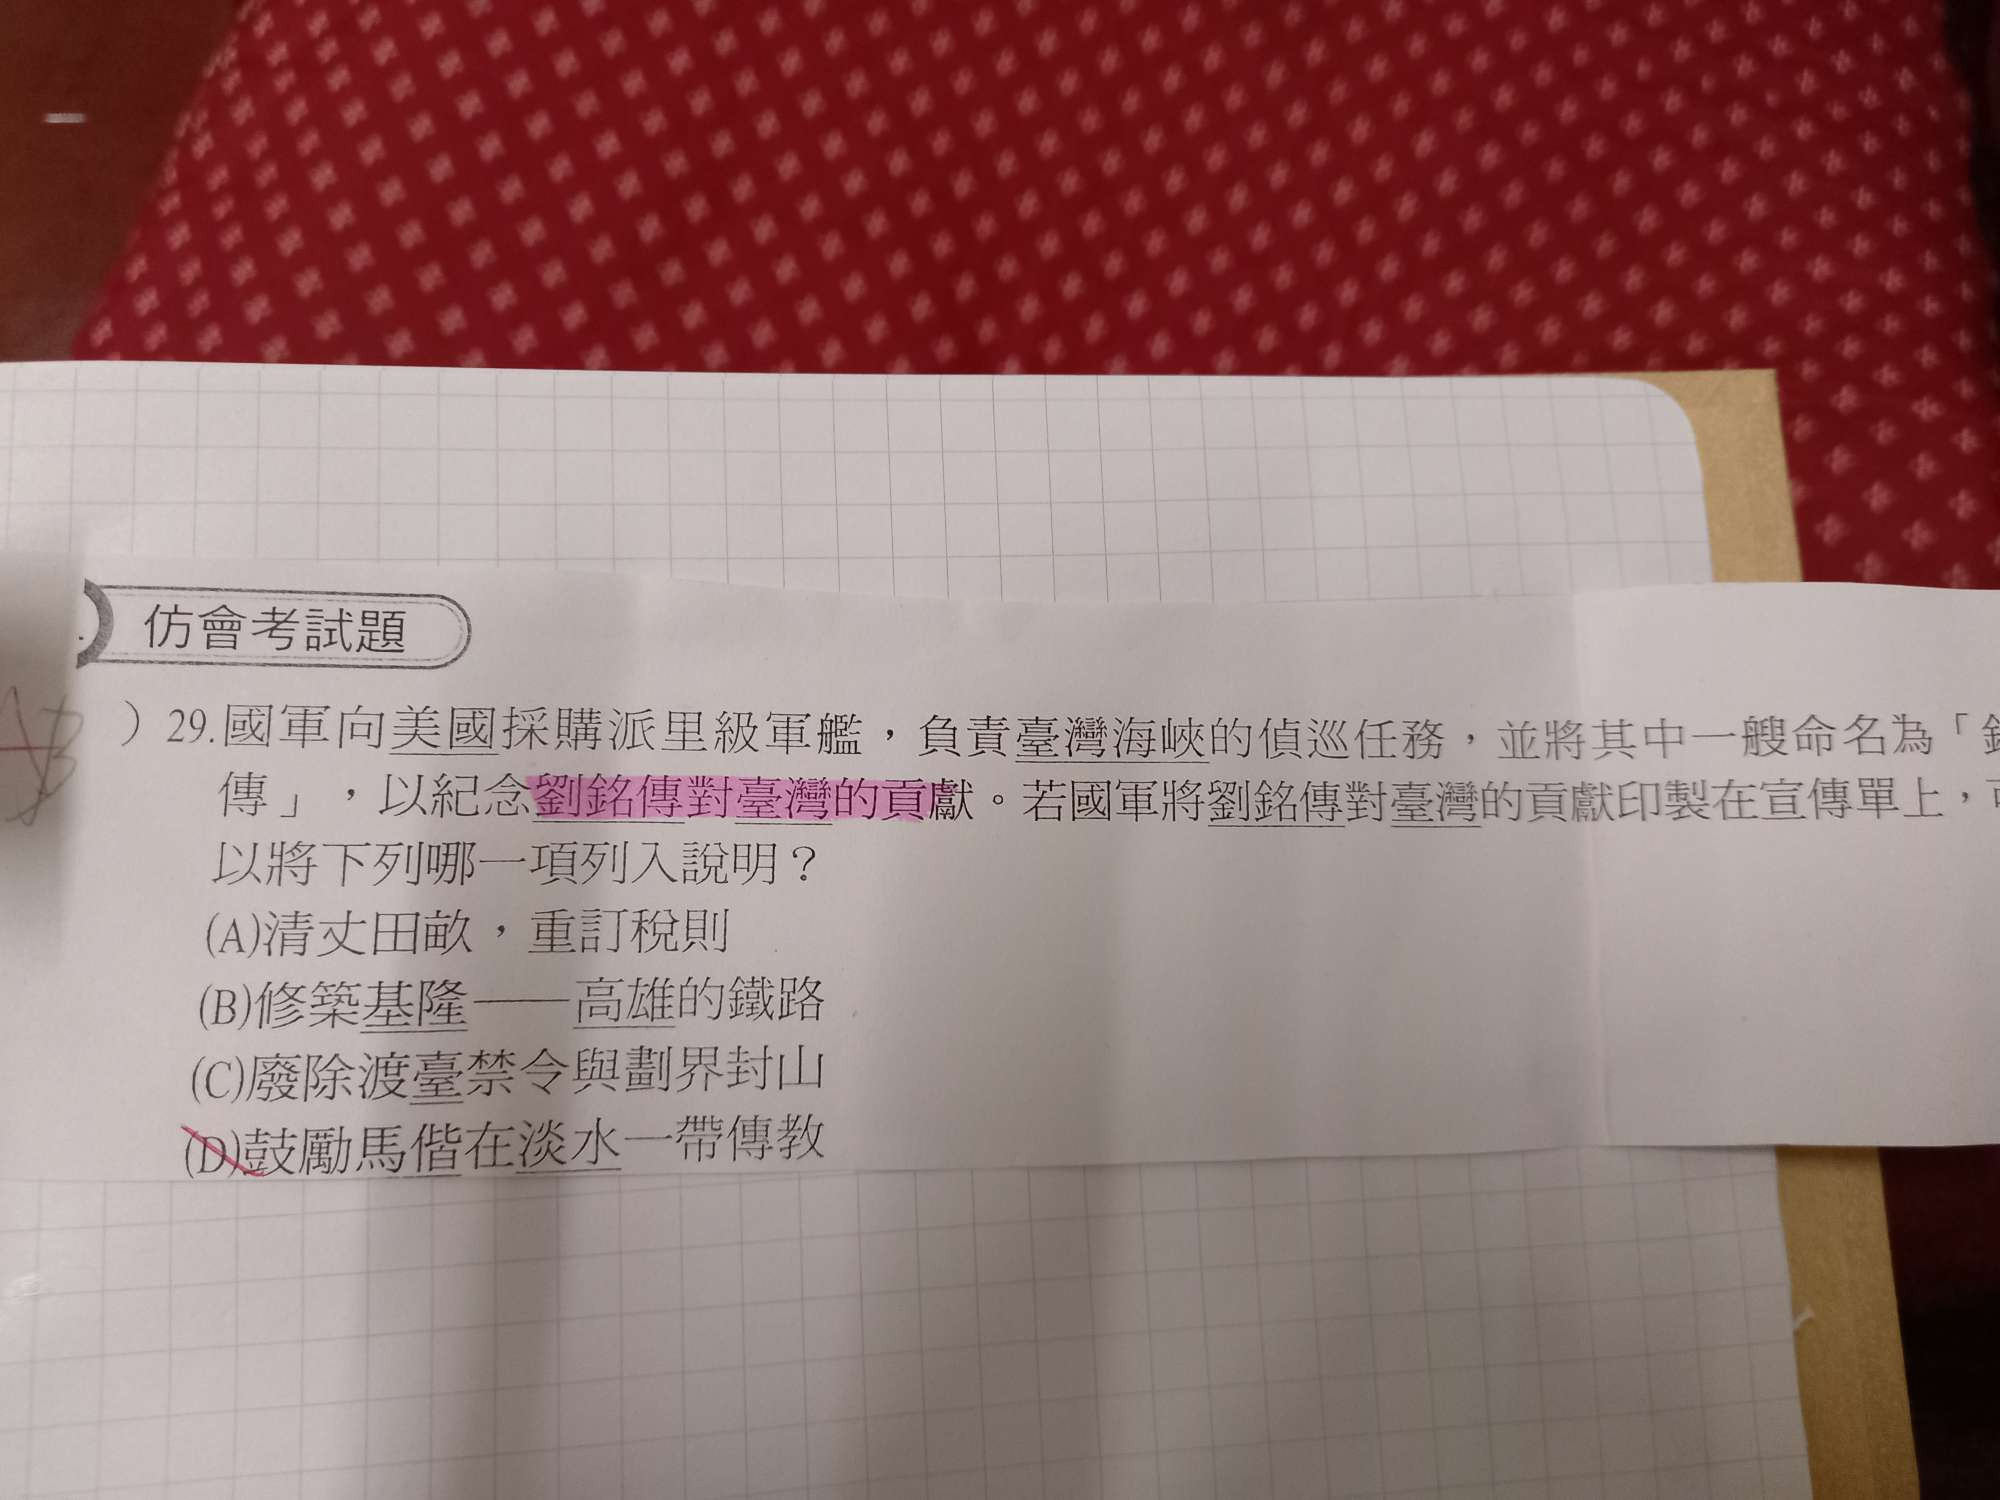 仿會考試題
)29.國軍向美國採購派里級軍艦，負責臺灣海峽的偵巡任務，並將其中一艘命名為「
傳」，以紀念劉銘傳對臺灣的貢獻。若國軍將劉銘傳對臺灣的貢獻印製在宣傳單上，可
以將下列哪一項列入說明？
(A)清丈田畝，重訂稅則
(B)修築基隆——高雄的鐵路
(C)廢除渡臺禁令與劃界封山
(D)鼓勵馬偕在淡水一帶傳教